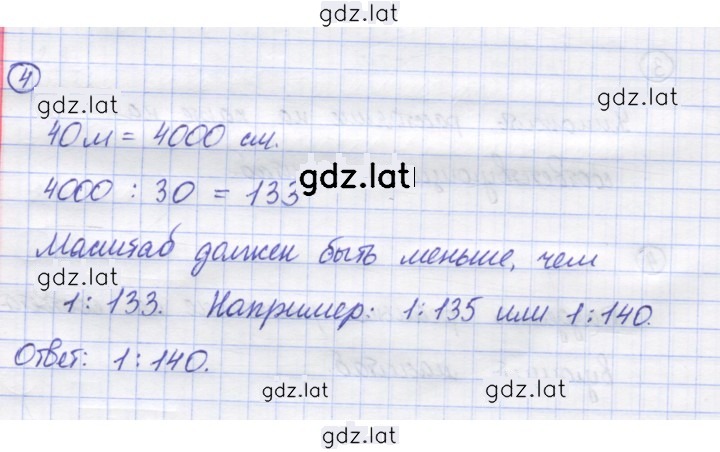 gdz.lat
4
gdz.lat
gdz.lat
40м = 4000 см.
4000 : 30 = 133
gdz.lat
Масштаб должен быть меньше, чем
gdz.lat
gdz.lat
1 : 133. Например: 1 : 135 или 1 : 140.
Ответ: 1 : 140.
gdz.lat
gdz.lat
gdz.lat